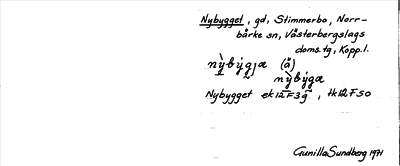 Nybygget, gd, Stimmerbo, Norr-
bärke sn, Västerbergslags
doms.tg, Kopp.l.
nỳbýgja (å)
nỳbýga
Nybygget ek 12 F 3 g, tk 12 F SO
Gunilla Sundberg 1971